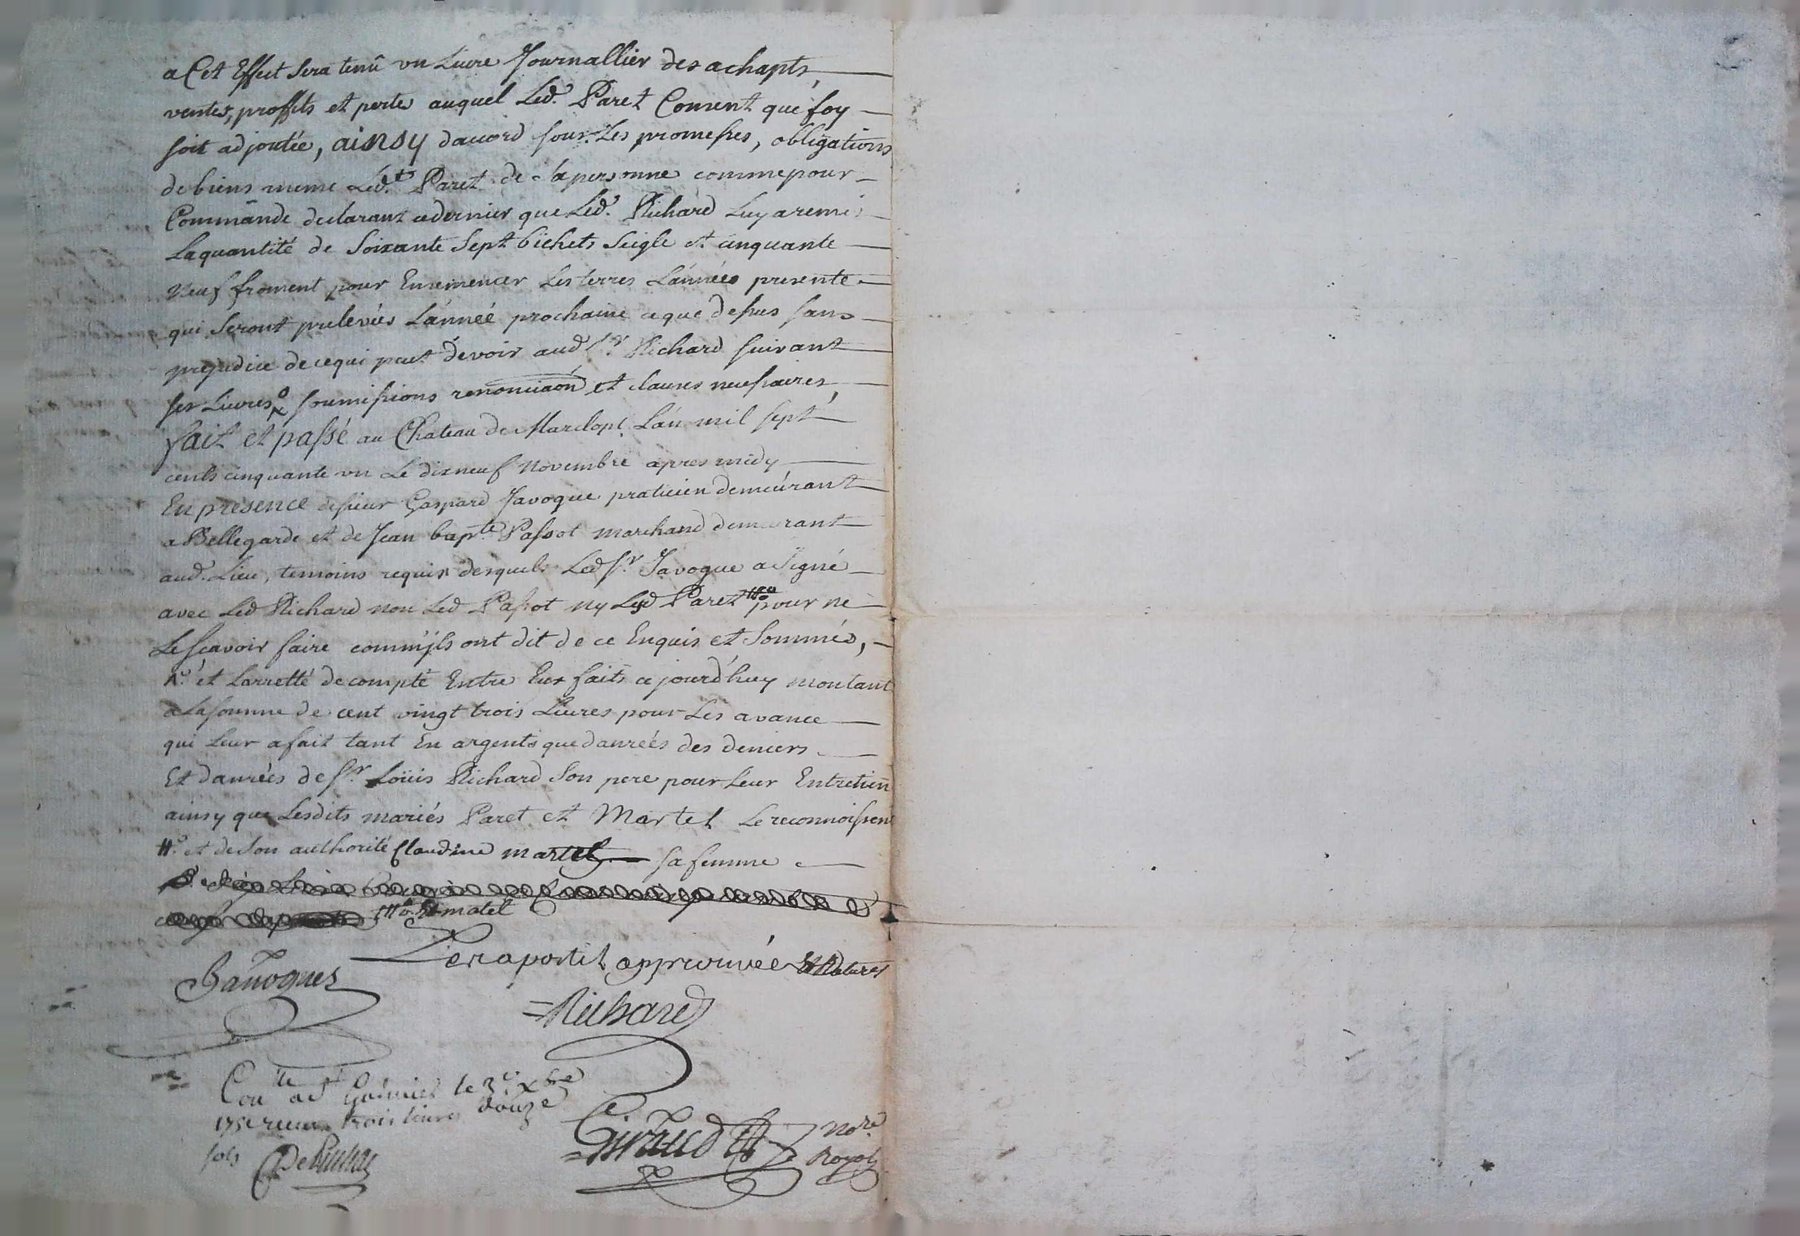 a Cet Effect sera tenû un Livre Journallier des achapts,
ventes, proffits et perte auquel Led. Paret Consent que foy
soit adjoutée, ainsy daccord sous Les promesses, obligations
de biens meme Led. Paret de sa personne comme pour
Commande declarant ce dernier que Led. Richard Luy a remis
La quantité de Soixante Sept bichets Seigle et cinquante
neuf froment pour Ensemencer Les terres L'année presente
qui Seront prelevés L'année prochaine ce que dessus sans
prejudice de ce qui peut devoir aud. Sr. Richard suivant
ses Livres soumissions renonciaon et clauses necessaires,
fait et passé au Chateau de Marclopt L'an mil sept
cents cinquante un Le dix neuf novembre apres midy
En presence de sieur Gaspard Javogue praticien demeurant
a Bellegarde et de Jean bapte. Passot marchand demeurant
aud. Lieu, temoins requis desquels Led. Sr. Javogue a Signé
avec Led Richard non Led Passot ny Led Paret pour ne
Le scavoir faire comm'ils ont dit de ce Enquis et Sommés,
et Larretté de compte Entre Eux fait ce jourd'huy montant
a La somme de cent vingt trois Livres pour Les avance
qui Leur a fait tant En argents que danrées des deniers
Et danrées de Sr. Loüis Richard Son pere pour Leur Entretien
ainsy que Lesdits mariés Paret et Martel Le reconnoissent
et de Son authorité Claudine martel sa femme
apostil approuvée
Javogues
Richard
Conlle. a St Galmier le 3e Xbre
1751 reçu trois livres douze
sols
Giraud Nore.
Royal